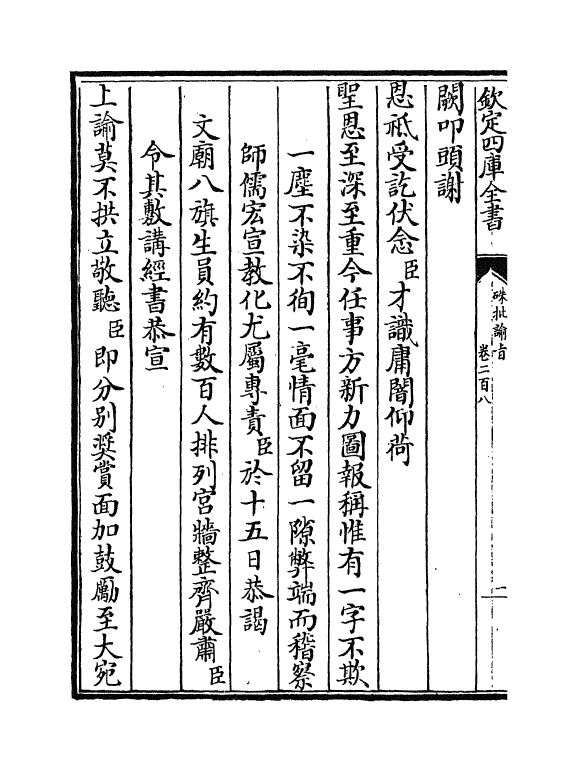 欽定四庫全書
硃批諭旨
卷二百八
一
闕叩頭謝
恩祗受訖伏念臣才識庸闇仰荷
聖恩至深至重今任事方新力圖報稱惟有一字不欺
一塵不染不徇一毫情面不留一隙弊端而稽察
師儒宏宣教化尤屬專責臣於十五日恭謁
文廟八旗生員約有數百人排列宮牆整齊嚴肅臣
令其敷講經書恭宣
上諭莫不拱立敬聽臣即分别奬賞面加鼓勵至大宛